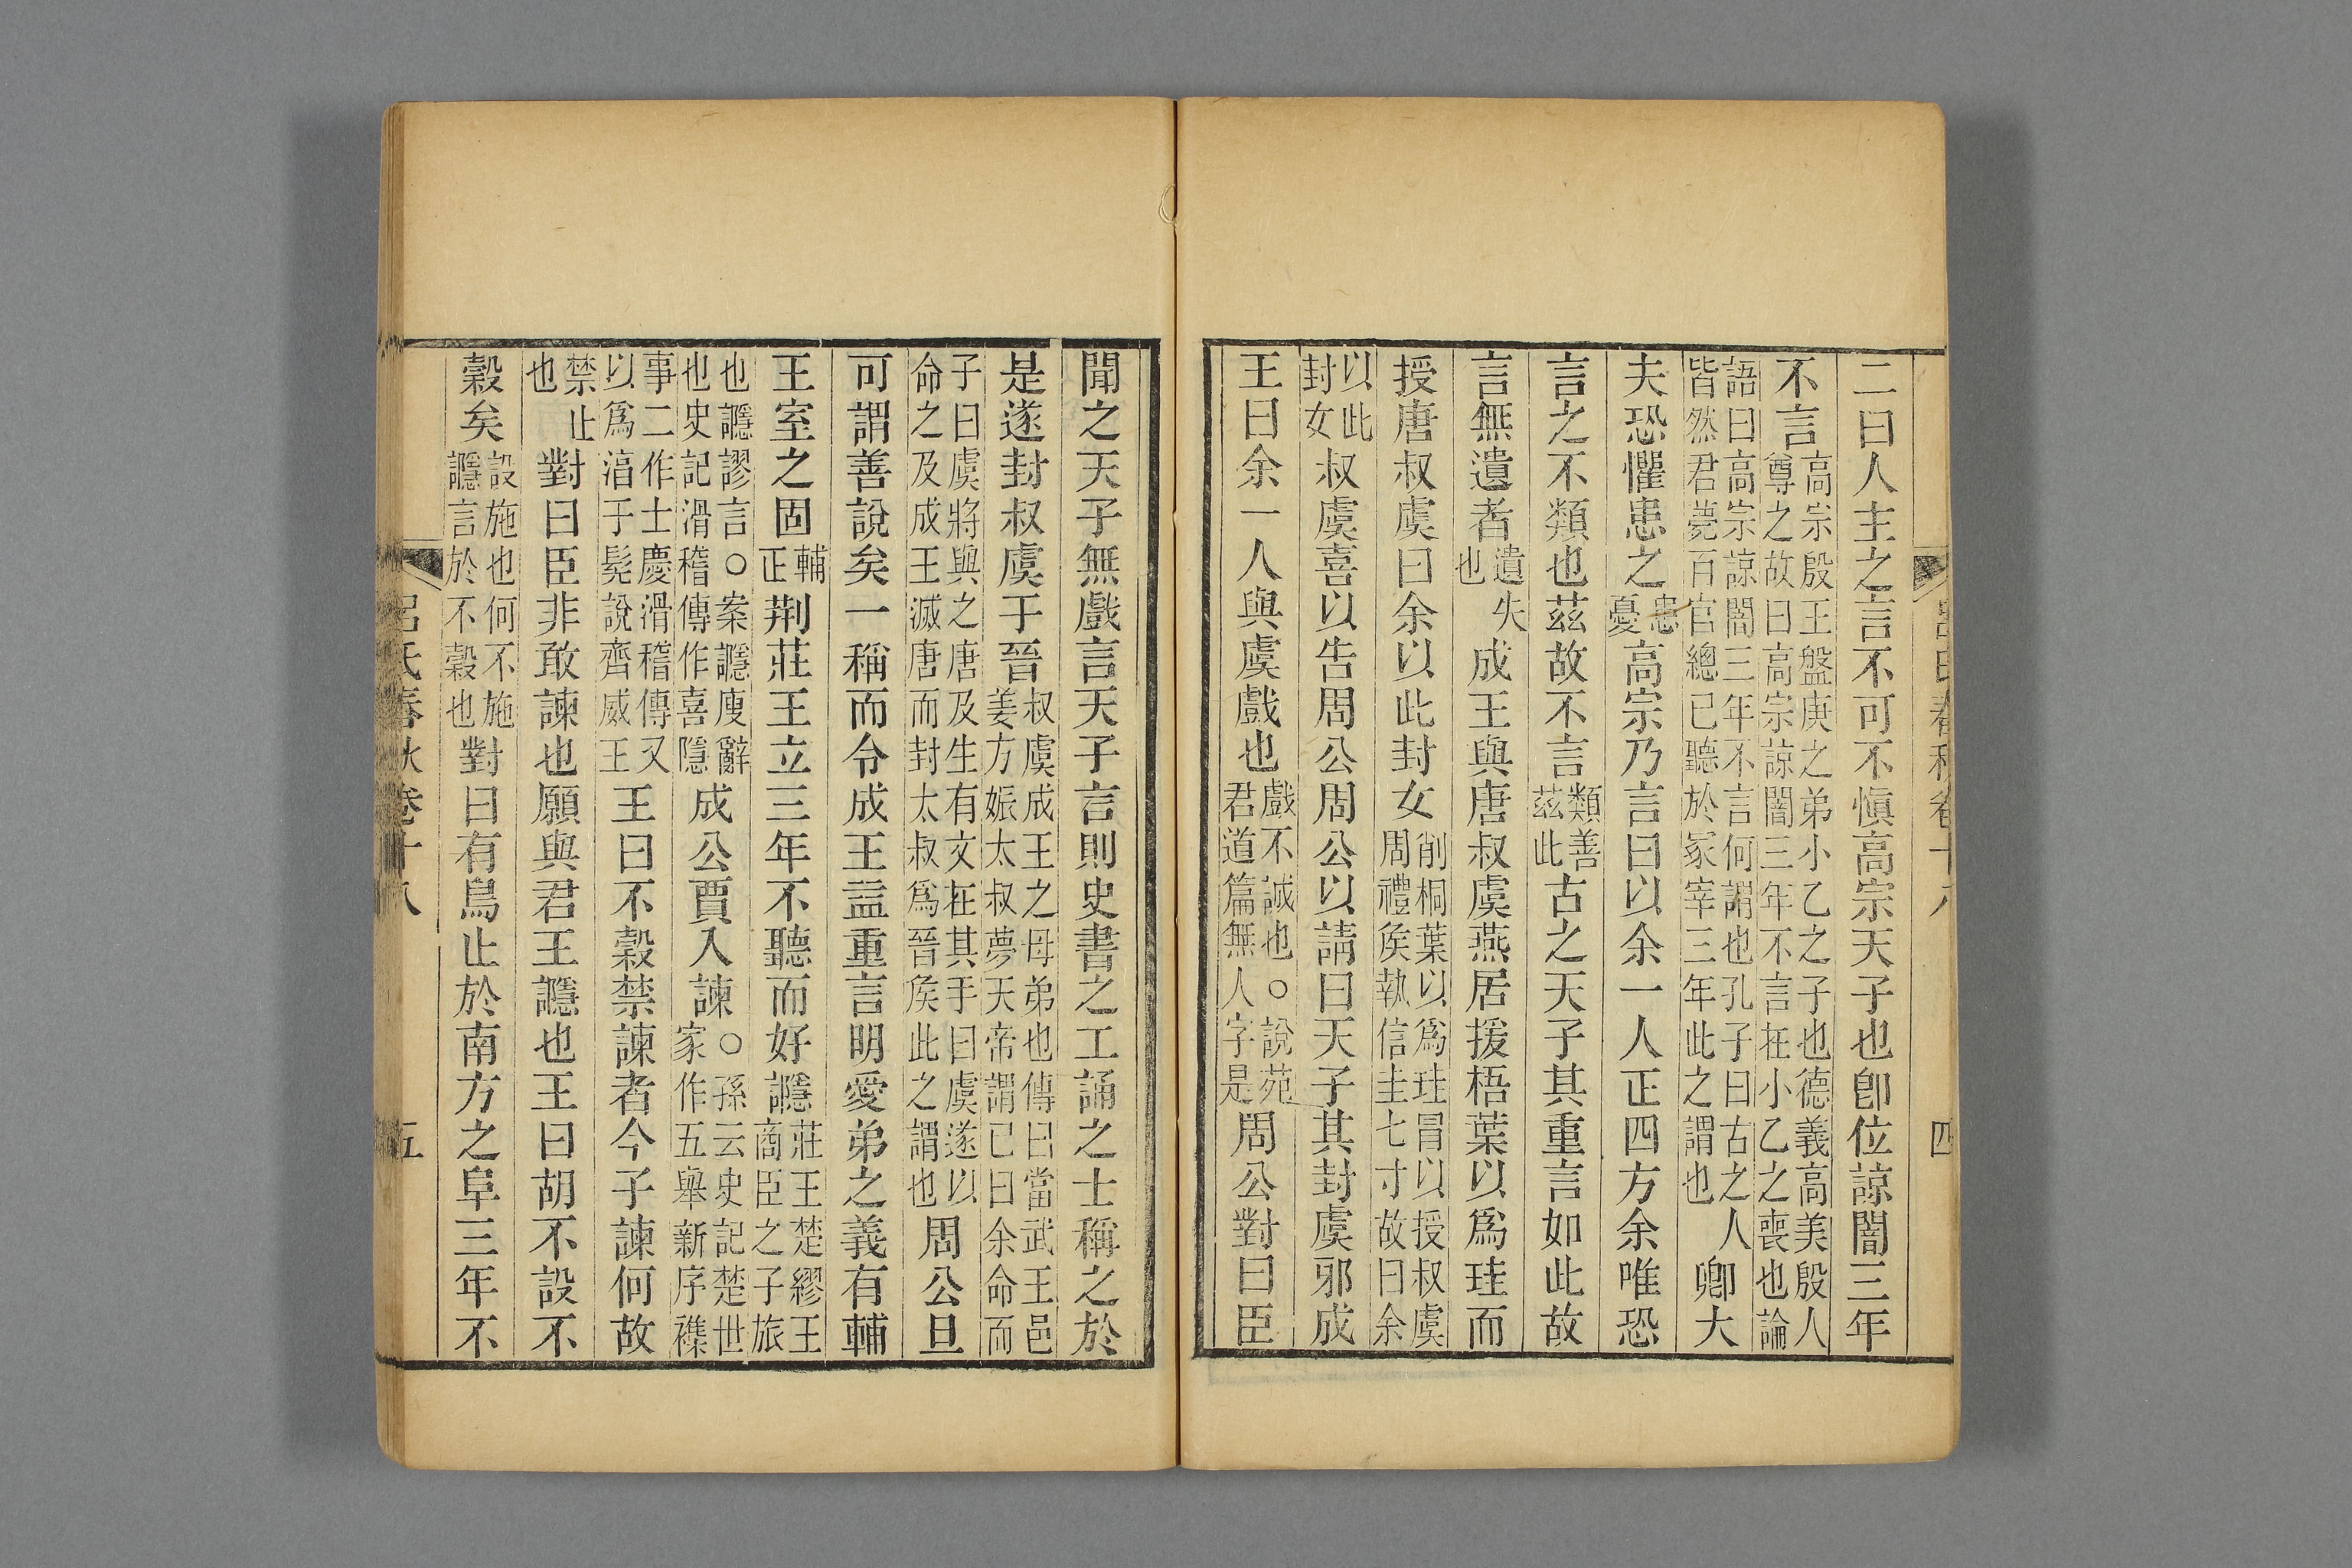 呂氏春秋卷十八 四
二曰人主之言不可不慎高宗天子也卽位諒闇三年
不言高宗殷王盤庚之弟小乙之子也德義高美殷人尊之故曰高宗諒闇三年不言在小乙之喪也論
語曰高宗諒闇三年不言何謂也孔子曰古之人皆然君薨百官總已聽於冢宰三年此之謂也卿大
夫恐懼患之患憂高宗乃言曰以余一人正四方余唯恐
言之不類也茲故不言類善茲此古之天子其重言如此故
言無遺者遺失也成王與唐叔虞燕居援梧葉以爲珪而
授唐叔虞曰余以此封女削桐葉以爲珪冒以授叔虞周禮侯執信圭七寸故曰余
以此封女叔虞喜以告周公周公以請曰天子其封虞邪成
王曰余一人與虞戲也戲不誠也○說苑君道篇無人字是周公對曰臣
聞之天子無戲言天子言則史書之工誦之士稱之於
是遂封叔虞于晉叔虞成王之母弟也傳曰當武王邑姜方娠太叔夢天帝謂已曰余命而
子曰虞將與之唐及生有文在其手曰虞遂以命之及成王滅唐而封太叔爲晉侯此之謂也周公旦
可謂善說矣一稱而令成王益重言明愛弟之義有輔
王室之固輔正荆莊王立三年不聽而好讔莊王楚繆王商臣之子旅
也讔謬言○案讔廋辭也史記滑稽傳作喜隱成公賈入諫○孫云史記楚世家作五舉新序襍
事二作士慶滑稽傳又以爲淳于髡說齊威王王曰不穀禁諫者今子諫何故
禁止也對曰臣非敢諫也願與君王讔也王曰胡不設不
穀矣設施也何不施讔言於不穀也對曰有鳥止於南方之阜三年不
呂氏春秋卷十八 五